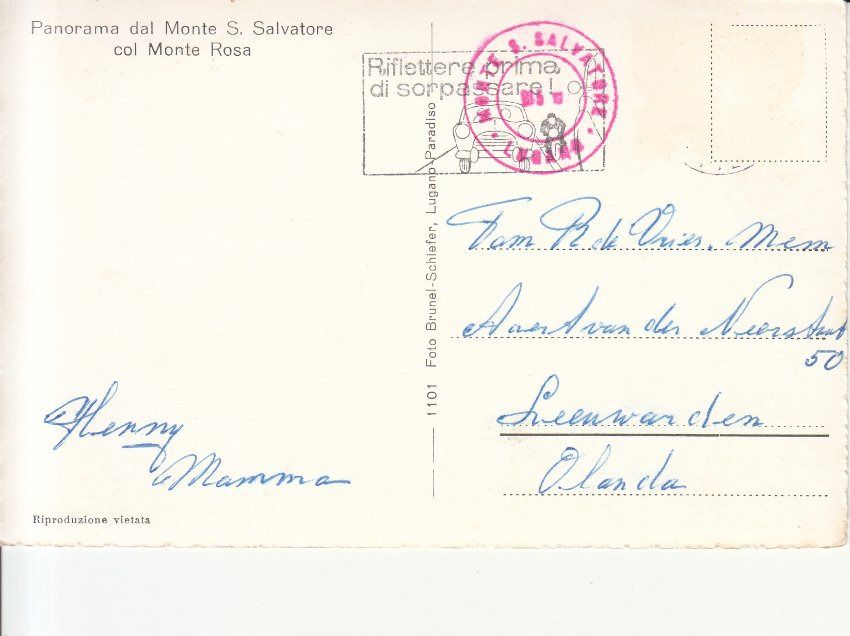 Panorama dal Monte S. Salvatore
col Monte Rosa
Riflettere prima
di sorpassare!
MONTE S. SALVATORE
LUGANO
1101 Foto Brunel-Schiefer, Lugano-Paradiso
Fam R de Vries. Mem
Aaert van der Neerstraat
50
Leeuwarden
Olanda
Henny
Mamma
Riproduzione vietata